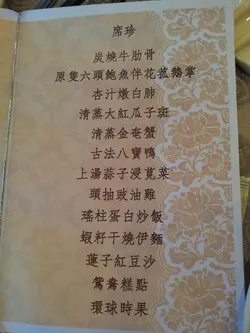 席珍
炭燒牛肋骨
原隻六頭鮑魚伴花菰鵝掌
杏汁燉白肺
清蒸大紅瓜子斑
清蒸金奄蟹
古法八寶鴨
上湯蒜子浸莧菜
頭抽豉油雞
瑤柱蛋白炒飯
蝦籽干燒伊麵
蓮子紅豆沙
鴛鴦糕點
環球時果